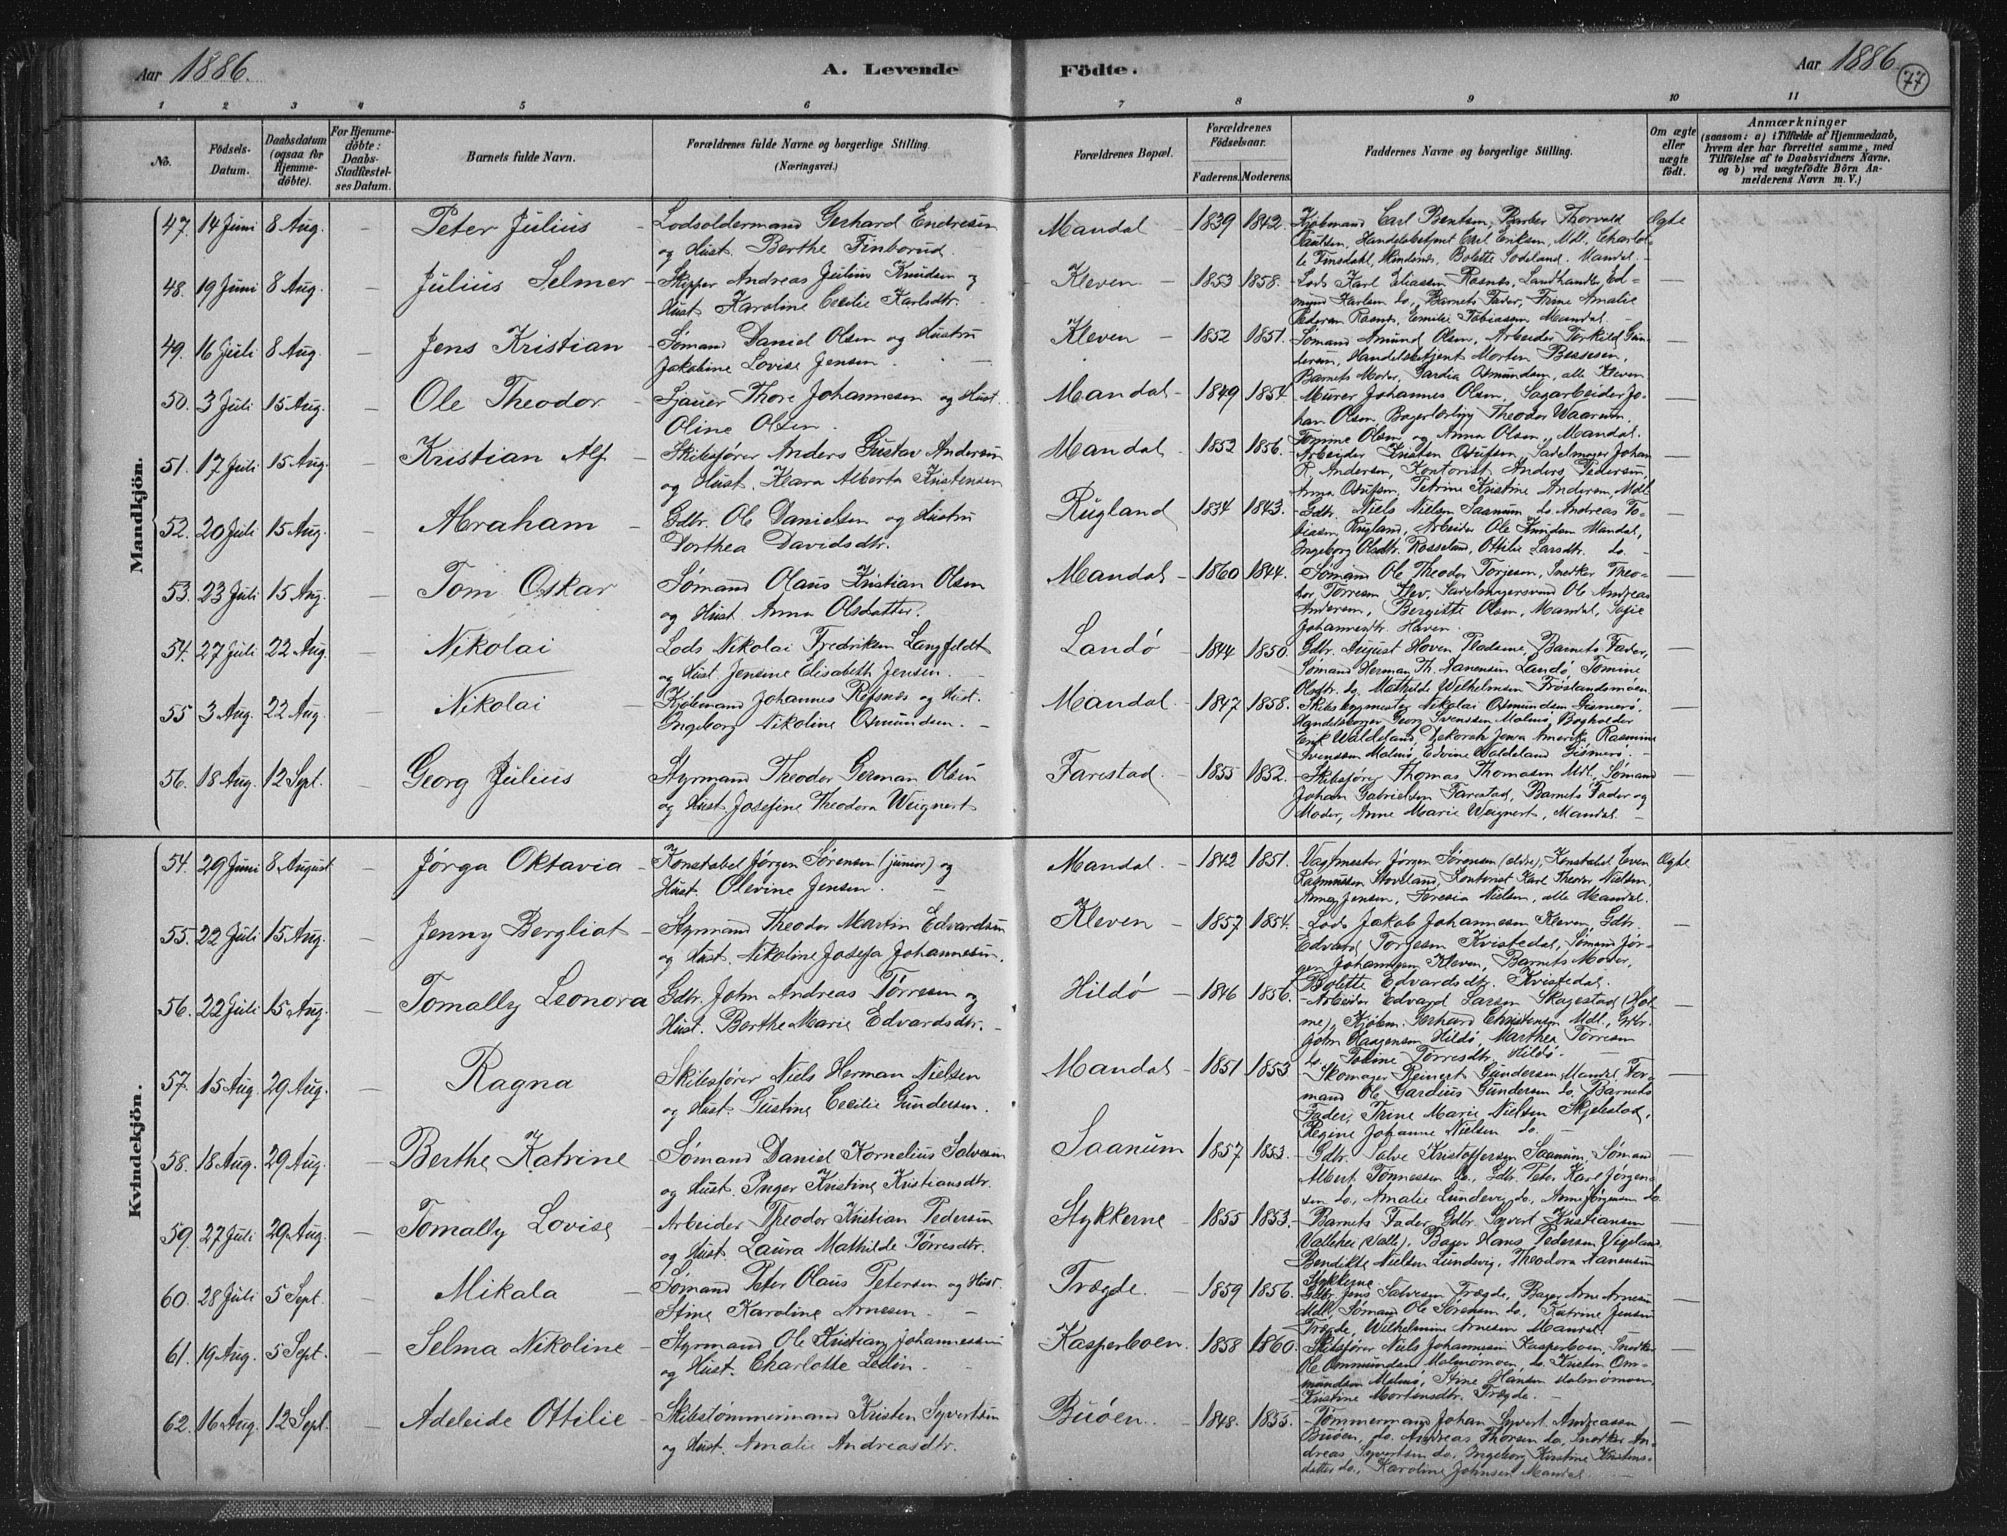 Aar 1886.
A. Levende Födte.
Aar 1886
77
1 2 3 4 5 6 7 8 9 10 11
No.
Födsels-Datum.
Daabsdatum (ogsaa for Hjemme-döbte).
For Hjemme-döbte: Daabs-Stadfæstel-ses Datum.
Barnets fulde Navn.
Forældrenes fulde Navne og borgerlige Stilling. (Næringsvei.)
Forældrenes Bopæl.
Forældrenes Födselsaar.
Faderens. Moderens.
Faddernes Navne og borgerlige Stilling.
Om ægte eller uægte födt.
Anmærkninger
(saasom: a) i Tilfælde af Hjemmedaab, hvem der har forrettet samme, med Tilföielse af to Daabsvidners Navne, og b) ved uægtefödte Börn An-melderens Navn m. V.)
Mandkjön.
47. 14 Juni 8 Aug. — Peter Julius — Lodsoldermand Gerhard Endresen
og Hust. Berthe Finborud.
Mandal — 1839 1842. Kjøbmand Carl Bentsen, Barber Thorvald
Paulsen, Handelsbetjent Carl Eriksen, Mdl, Charlot-
te Finsdahl, Bolette Sodeland. Mandal. — Ægte
48. 19 Juni 8 Aug. — Julius Selmer — Skipper Andreas Julius Knudsen og
Hust. Karoline Cecilie Karlsdtr.
Kleven — 1853 1858. — Lods Karl Eliassen Rosnes, Landhandler Ed-
mund Karlsen do, Barnets Fader, Trine Amalie
Pedersen Rosnes, Emilie Tobiassen Mandal. —
49. 16 Juli 8 Aug. — Jens Kristian — Sømand Daniel Olsen og Hustru
Jakobine Lovise Jensen. —
Kleven — 1852 1851. Sømand Amund Olsen, Arbeider Torkild Gun-
dersen, Handelsbetjent Morten Bessesen,
Barnets Moder, Gardia Osmundsen, alle Kleven —
50. 3 Juli 15 Aug. — Ole Theodor — Sjauer Thore Johannesen og Hust.
Oline Olsen.
Mandal — 1849 1854. — Murer Johannes Olsen, Sagarbeider Jo-
han Olsen, Theodor Waarum,
Tomine Olsen og Anna Olsen, Mandal. —
51. 17 Juli 15 Aug. — Kristian Alf — Skibsfører Anders Gustav Andersen
og Hust. Klara Alberta Kristensen
Mandal — 1852 1856. Arbeider Kristen Osufsen, Sadelmager Johan
R. Andersen, Kontorist Anders Pedersen,
Anna Osufsen, Petrine Kristine Andersen, Mdl —
52. 20 Juli 15 Aug. — Abraham — Gdbr. Ole Danielsen og Hustru
Dorthea Davidsdtr.
Rugland 1834 1843. — Gdbr. Niels Nielsen Saanum do Andreas To-
biasen Rugland, Arbeider Ole Knudsen Mandal,
Ingeborg Olsdtr. Rosseland, Ottilie Larsdtr. do. —
53. 23 Juli 15 Aug. — Tom Oskar — Sømand Olaus Kristian Olsen
og Hust. Anna Olsdatter.
Mandal — 1860 1844. — Sømand Ole Theodor Torjesen, Snedker Theo-
dor Torresen Klev, Sadelmagersvend Ole Andreas
Andersen, Bergitte Olsen, Mandal, Sofie
Johannesdtr. Haven. —
54. 27 Juli 22 Aug. — Nikolai — Lods Nikolai Fredriksen Langfeldt
og Hust. Jensine Elisabeth Jensen. —
Landö — 1844 1850. Gdbr. August Hoven, Barnets Fader,
Sømand Herman Th. Aanensen Landö, Tomine
Olsdtr. do, Mathilde Wilhelmsen Frøslandsmoen. —
55 3 Aug. 22 Aug. — Nikolai — Kjøbmand Johannes Rosnæs og Hust.
Ingeborg Nikoline Osmundsen. —
Mandal — 1847 1858. — Skibsbygmester Nikolai Osmundsen Gismerö,
Handelsborger Georg Svenssen Malmö, Bogholder
Erik Waldeland, Dekorah Jowa Amerika, Rasmine
Svenssen Malmö, Edvine Waldeland Gismerö. —
56. 18 Aug. 12 Sept. — Georg Julius — Styrmand Theodor German Olsen
og Hust. Josefine Theodora Weignert
Farestad. — 1855 1852. — Skibsfører Thomas Thomasen Mdl, Sømand
Johan Gabrielsen Farestad, Barnets Fader og
Moder, Anne Marie Weignert, Mandal —
Kvindekjön.
54. 29 Juni 8 August — Jørga Oktavia — Konstabel Jørgen Sørensen (junior) og
Hust. Olevine Jensen. —
Mandal. — 1842 1851. Vagtmester Jørgen Sørensen (eldre), Konstabel Even
Rasmussen Stoveland, Kontorist Karl Theodor Nielsen,
Anne Jensen, Teresia Nielsen, alle Mandal. Ægte
55. 22 Juli 15 Aug. — Jenny Bergliot — Styrmand Theodor Martin Edvardsen
og Hust. Nikoline Josefa Johannesen.
Kleven — 1857 1854. — Lods Jakob Johannesen Kleven, Gdbr.
Edvard Torjesen Kvistedal, Sømand Jør-
gen Johannesen Kleven, Barnets Moder,
Bolette Edvardsdtr. Kvistedal. —
56. 22 Juli 15 Aug. — Tomally Leonora — Gdbr. John Andreas Tørresen og
Hust. Berthe Marie Edvardsdtr. —
Hildö — 1846 1856. — Arbeider Edvard Larsen Skagestad (Hol-
me), Kjøbm. Gerhard Christensen Mdl., Gdbr.
John Haagensen Hildö, Marthea Tørresen
do. Tobine Tørresdtr. Hildö. —
57. 15 Aug. 29 Aug. — Ragna — Skibsfører Niels Herman Nielsen
og Hust. Gustine Cecilie Gundersen.
Mandal — 1851 1853 — Skomager Reinert Gundersen, Mandal, For-
mand Ole Gardius Gundersen do, Barnets
Fader, Trine Marie Nielsen Skjebstad,
Regine Johanne Nielsen do. —
58. 18 Aug. 29 Aug. — Berthe Katrine — Sømand Daniel Kornelius Salvesen
og Hust. Inger Kristine Kristiansdtr.
Saanum — 1857 1853. — Gdbr. Salve Kristoffersen Saanum, Sømand
Albert Tønnessen do., Gdbr. Peter Karl Jørgen-
sen do., Amalie Lundevig do, Anne Jørgensen do. —
59. 27 Juli 29 Aug. — Tomally Lovise — Arbeider Theodor Kristian Pedersen
og Hust. Laura Mathilde Tørresdtr.
Stykkerne — 1855 1853. — Barnets Fader, Gdbr. Syvert Kristiansen
Vallehei (Valle), Bager Hans Pedersen Vigeland,
Bendikte Nielsen Lundevig, Theodora Aanensen
Stykkerne —
60. 28 Juli 5 Sept. — Mikala — Sømand Peter Olaus Petersen og Hust.
Stine Karoline Arnesen. —
Trægde. — 1859 1856. Gdbr. Jens Salvesen Trægde, Bager Arne Arnesen
Mdl, Sømand Ole Sørensen do., Katrine Jensen
Trægde, Wilhelmine Arnesen Mandal —
61. 19 Aug. 5 Sept. — Selma Nikoline — Styrmand Ole Kristian Johannessen
og Hust. Charlotte Ledin. —
Kasperboen. 1858 1860. Skibsfører Niels Johannesen Kasperboen, Snedker
Ole Ommundsen Malmömoen, do. Kristen Om-
mundsen Malmö, Stine Hansen Holmömoen,
Kristine Mortensdtr. Trægde. —
62. 16 Aug. 12 Sept. — Adeleide Ottilie — Skibstømmermand Kristen Syvertsen
og Hust. Amalie Andreasdtr.
Buöen. — 1848. 1855. — Tømmermand Johan Syvert Andreassen
Buöen, do. Andreas Thorsen do, Snedker An-
dreas Syvertsen do, Ingeborg Kirstine Kristens-
datter do, Karoline Johnsen Mandal —